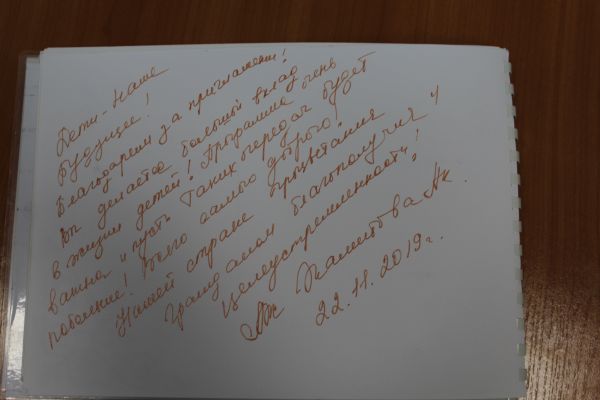 Дети - наше
будущее!
Благодарим за приглашение!
Вы делаете большой вклад
в жизни детей! Программа очень
важна и пусть таких передач будет
побольше! Всего самого доброго!
Нашей стране процветания
Гражданам благополучия и
целеустремленность!
22.11.2019г.